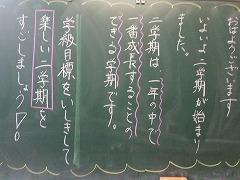 おはようございます
いよいよ二学期が始まり
ました。
二学期は、一年の中で
一番成長することの
できる学期です。
学級目標をいしきして
楽しい二学期を
すごしましょう